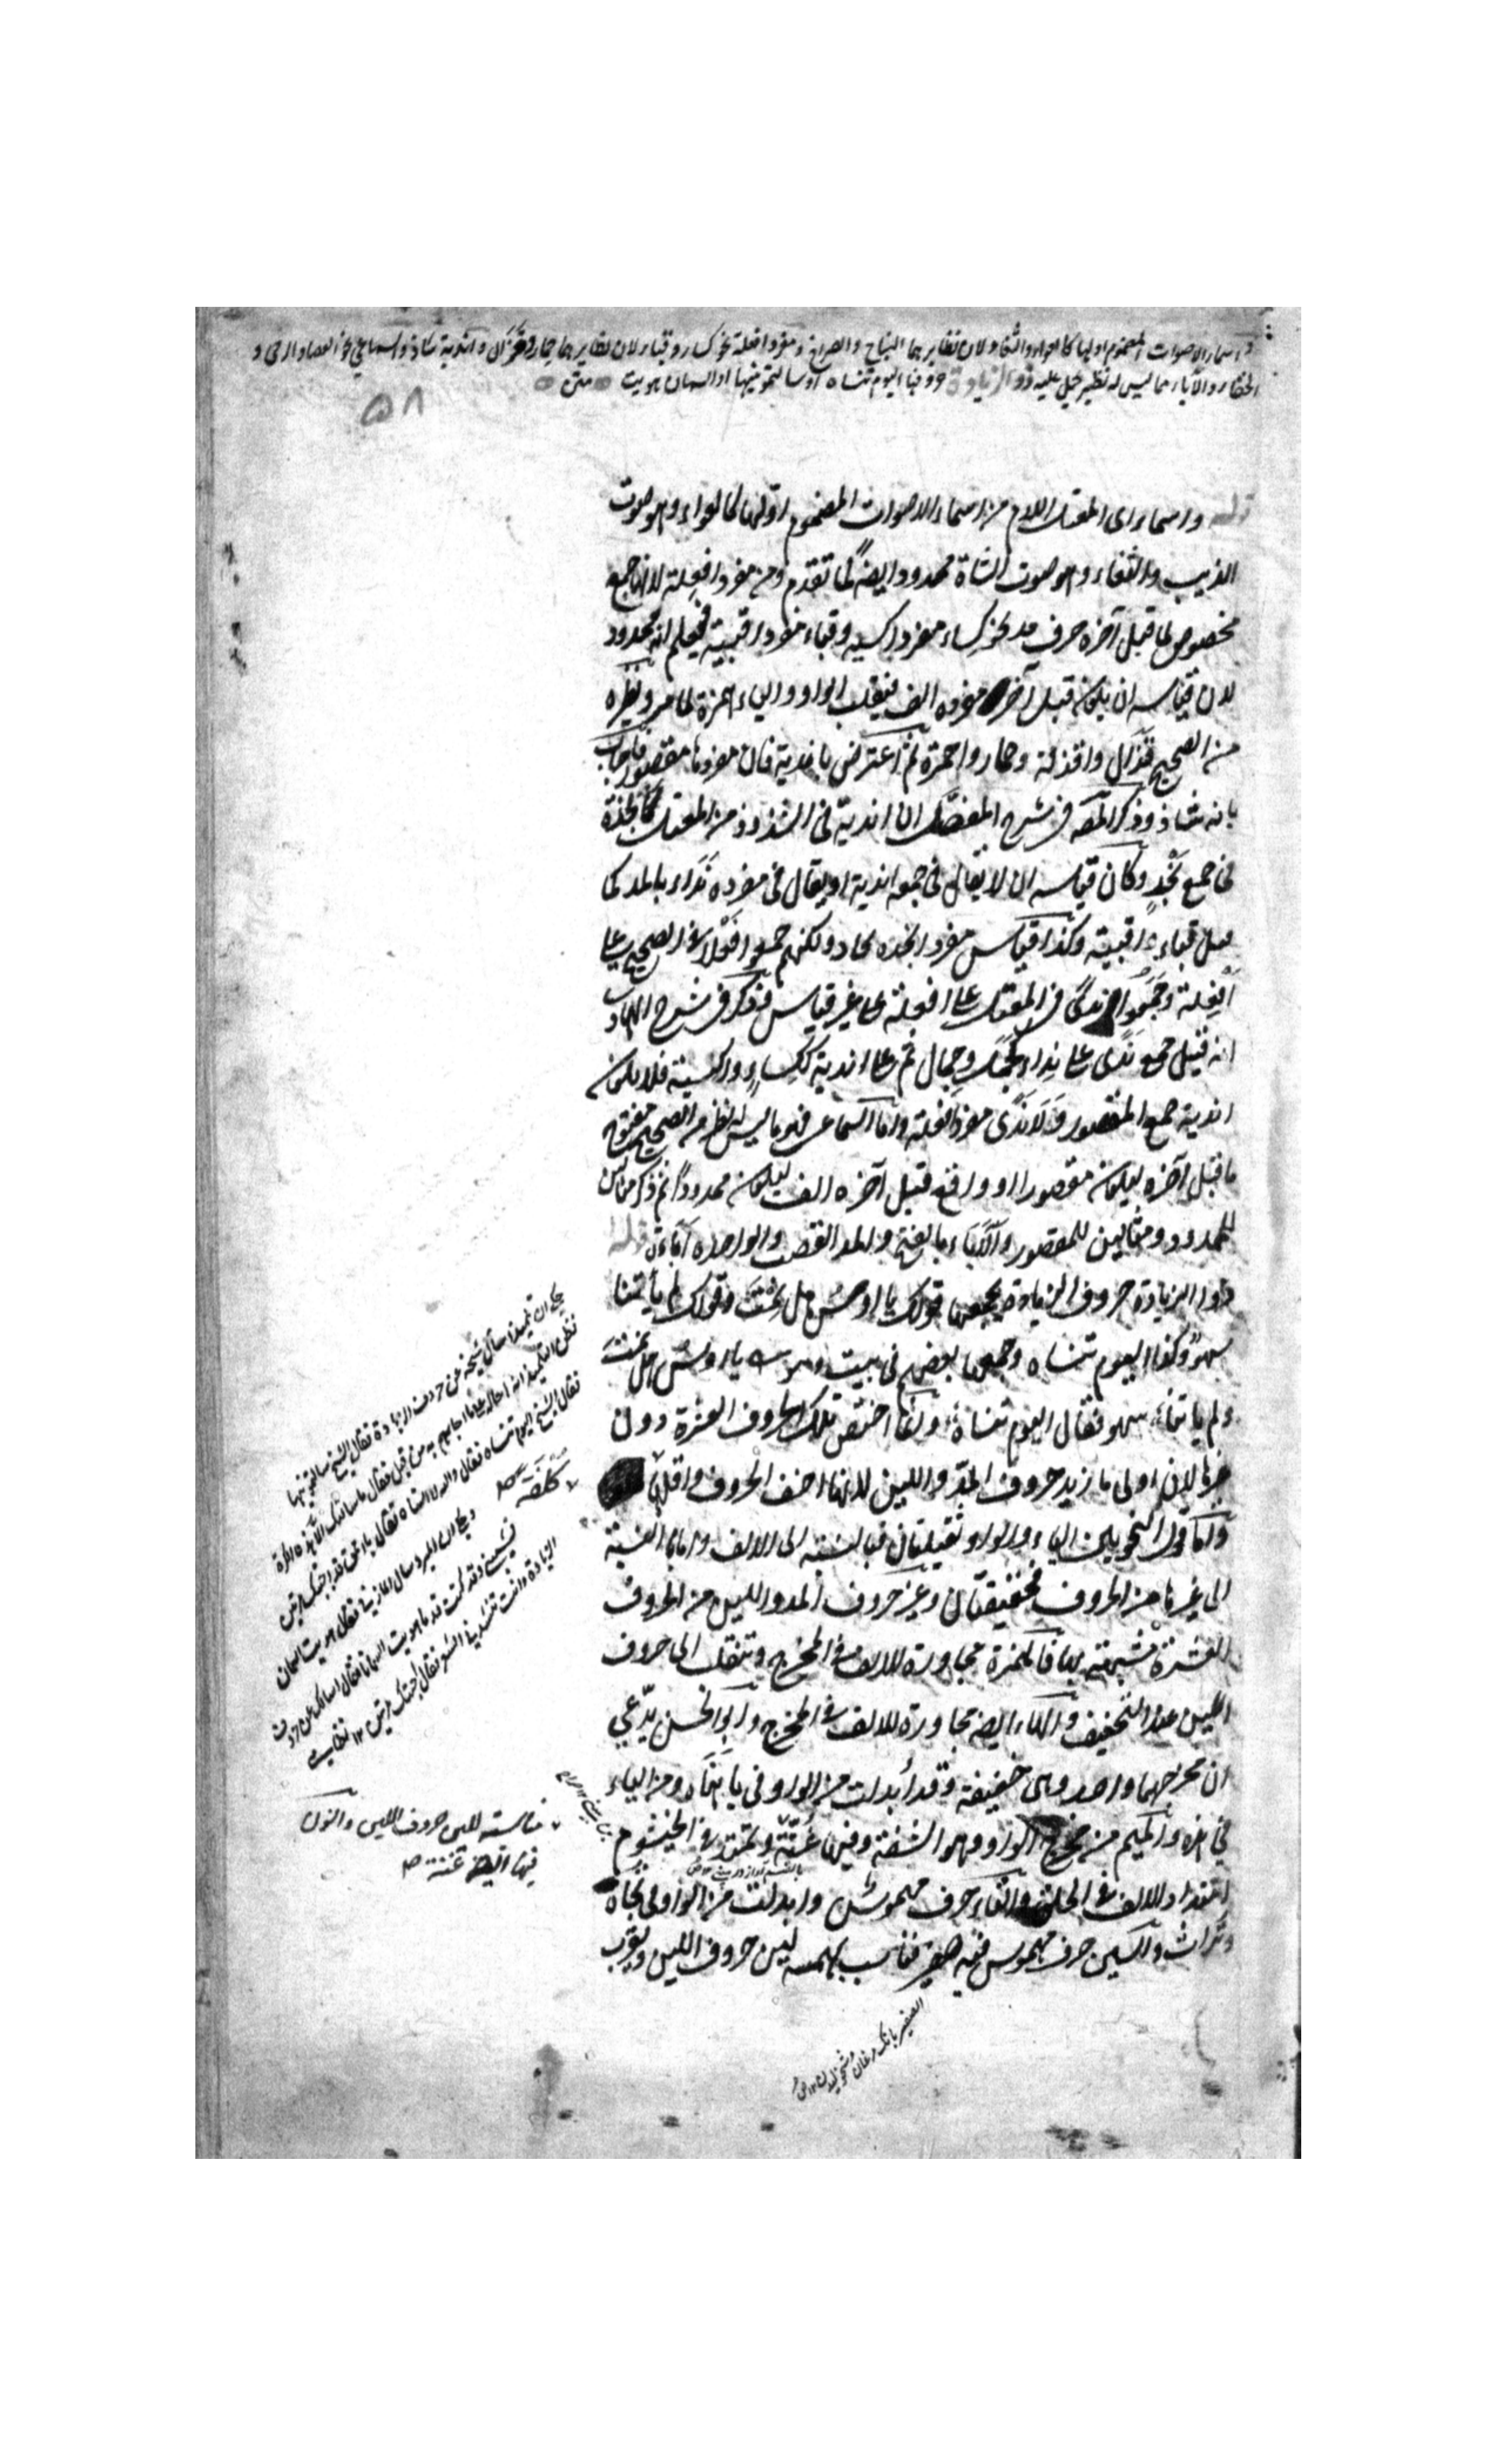 و اسماء الاصوات المضموم اولها كالعواء والثغاء لان نظايرهما النباح والصراخ ومفرد افعلة نحو كساء وقباء لان نظايرهما حمار وقذال واندية شاذ والسماعي نحو العصا والرحى و
الخفاء والاباء مما ليس له نظير يحمل عليه ذو الزيادة حروفها اليوم تنساه او سالتمونيها او السمان هويت متن
٥٨
قوله واسماء اى المعتل اللام من اسماء الاصوات المضموم اولها كالعواء وهو صوت
الذيب والثغاء وهو صوت الشاة ممدود ايضا كما تقدم ومن مفرد افعلة لانها جمع
مخصوص لما قبل آخره حرف مد نحو كساء مفرد اكسية وقباء مفرد اقبية فيعلم انه ممدود
لان قياسه ان يكون قبل آخر مفرده الف فينقلب الواو والياء همزة لما مر ونظيره
من الصحيح قذال واقذلة وحمار واحمرة ثم اعترض باندية فان مفردها مقصور فاجاب
بانه شاذ وذكر المصه في شرح المفصل ان اندية في الشذوذ من المعتل كانجدة
في جمع نجد وكان قياسه ان لا يقال في جمعه اندية او يقال في مفرده نداء بالمد كما
قيل قباء واقبية وكذا قياس مفرد انجده نجاد ولكنهم جمعوا فعلا في الصحيح على
افعلة وجمعوا ندى في المعتل على افعلة على غير قياس وذكر في شرح الهادى
انه قيل جمع ندى على نداء كجمل وجمال ثم على اندية ككساء واكسية فلا يكون
اندية جمع المقصور ولا ندى مفرد افعلة واما السماعى فهو ما ليس له نظير من الصحيح مفتوح
ما قبل آخره ليكون مقصورا او واقع قبل آخره الف ليكون ممدودا ثم ذكر مثالين
للممدود ومثالين للمقصور والاباء بالفتح والمد القصب والواحدة اباءة قوله
ذو الزيادة حروف الزيادة يجمعها قولك يا اوس هل نمت وقولك لم يأتنا
سهو وكذا اليوم تنساه وجمعها بعضهم في بيت وهو يا اوس هل نمت
ولم ياتنا سهو فقال اليوم تنساه وانما اختص تلك الحروف العشرة دون
غيرها لان اولى ما زيد حروف المد واللين لانها اخف الحروف واقلها
واما قول النحويين الياء والواو ثقيلتان فبالنسبة الى الالف واما بالنسبة
الى غيرها من الحروف فخفيفتان وغير حروف المد واللين من الحروف
العشرة مشبهة بها فالهمزة مجاورة للالف في المخرج وتنقلب الى حروف
اللين عند التخفيف والهاء ايضا مجاورة للالف في المخرج وابو الحسن يدعى
ان مخرجهما واحد وهى خفيفة وقد ابدلت من الواو في يا هناه ومن الياء
في هذه والميم من مخرج الواو وهو الشفة وفيها غنة وتمتد في الخيشوم
امتداد الالف في الحلق والتاء حرف مهموس وابدلت من الواو في تجاه
وتراث والسين حرف مهموس فيه صفير فناسب بهمسه لين حروف اللين ويقرب
حكى ان تلميذا سأل شيخه عن حروف الزيادة فقال الشيخ سالتمونيها
فظن التلميذ انه احاله على ما اجابهم به من قبل فقال ما سألتك الا هذه المرة
فقال الشيخ اليوم تنساه فقال والله لا انساه فقال يا احمق قد اجبتك مرتين
وحكى ان المبرد سال المازنى عنها فقال هويت السمان
فشيبننى وقد كنت قدما هويت السمانا فقال اسالك عن حروف
الزيادة وانت تنشدنى الشعر فقال اجبتك مرتين
كلفة صح
مناسبة للين حروف اللين والنون
فيها ايضا غنة صح
الصفير بانك مرغان